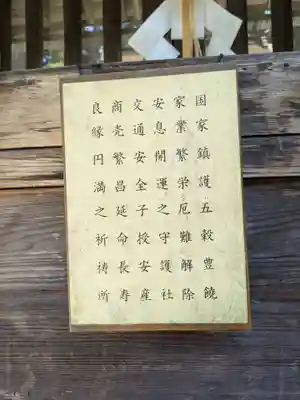 国家鎮護五穀豊饒
家業繁栄厄難解除
安息開運之守護社
交通安全子授安産
商売繁昌延命長寿
良縁円満之祈祷所